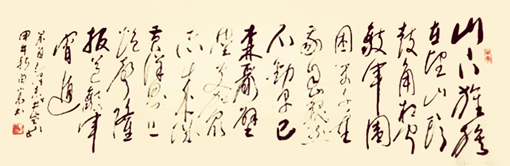 山下旌旗
在望山头
鼓角相闻
敌军围
困万千重
我自岿然
不动早已
森严壁
垒更加众
志成城
黄洋界上
炮声隆
报道敌军
宵遁